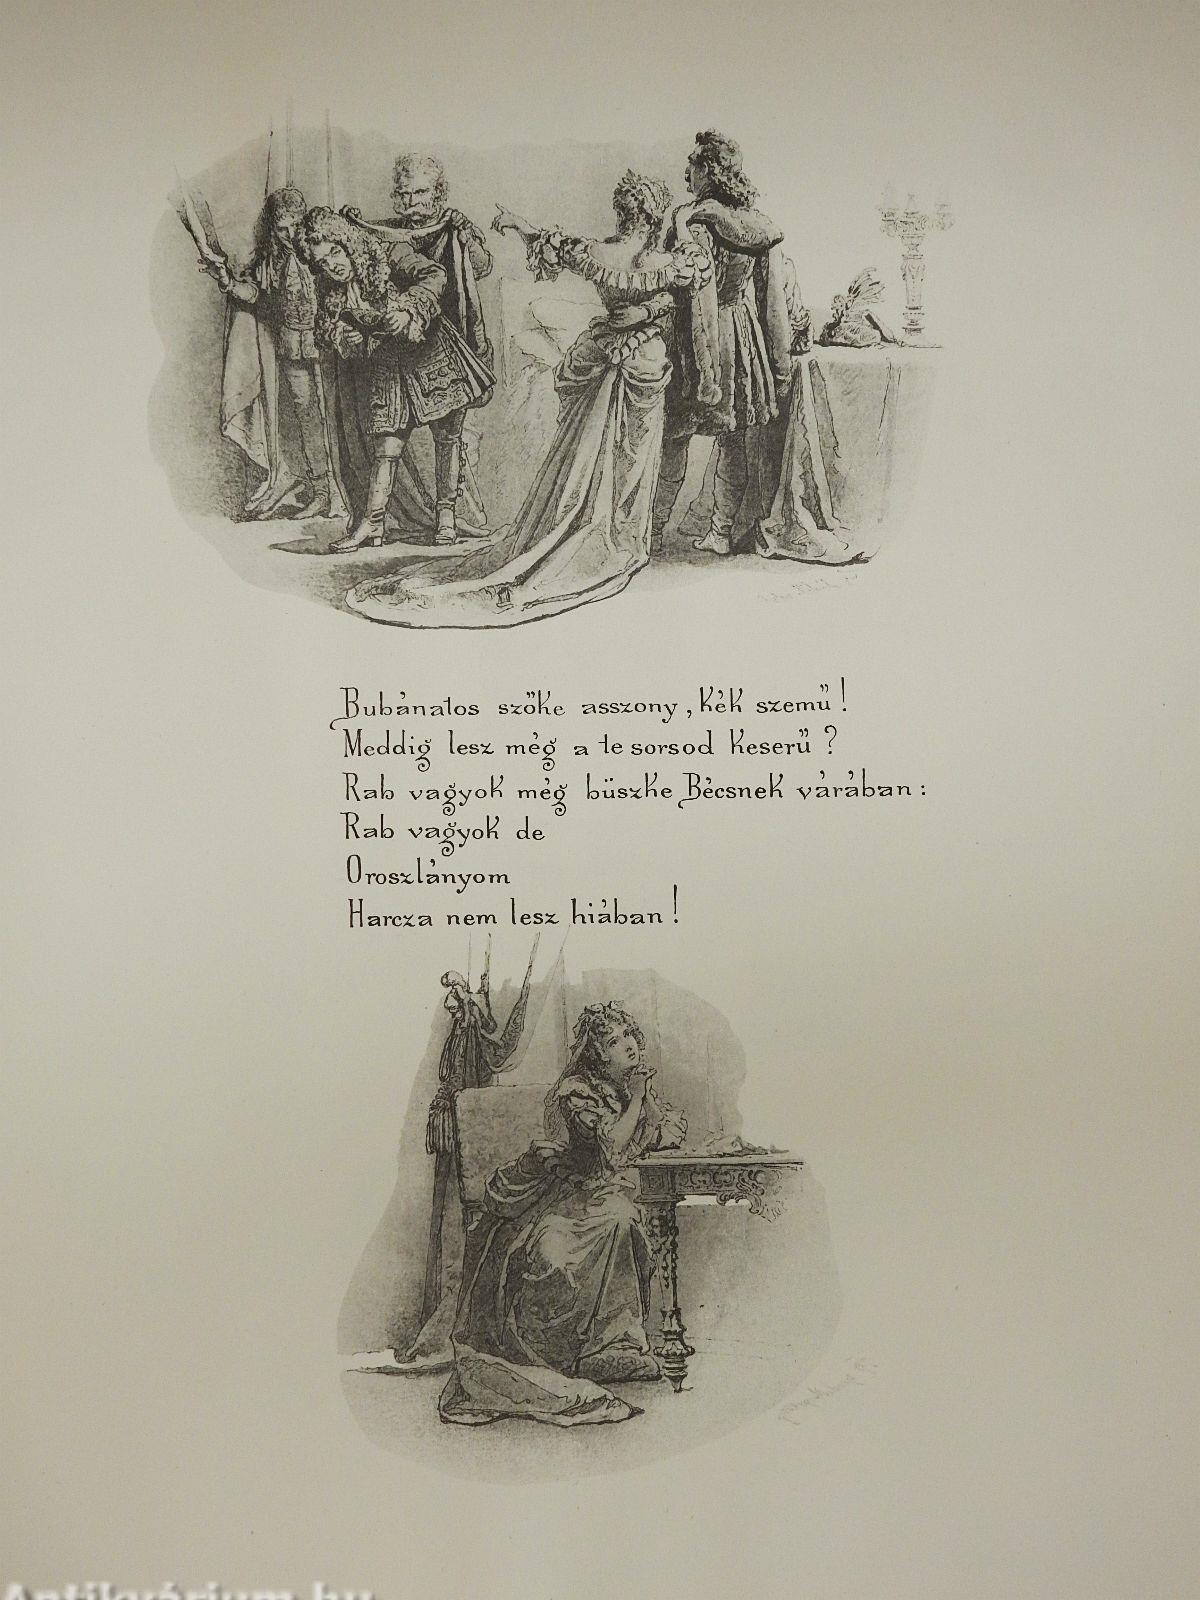 Bubánatos szőke asszony, kék szemű!
Meddig lesz még a te sorsod keserű?
Rab vagyok még büszke Bécsnek várában:
Rab vagyok de
Oroszlányom
Harcza nem lesz hiában!
Antikvárium.hu